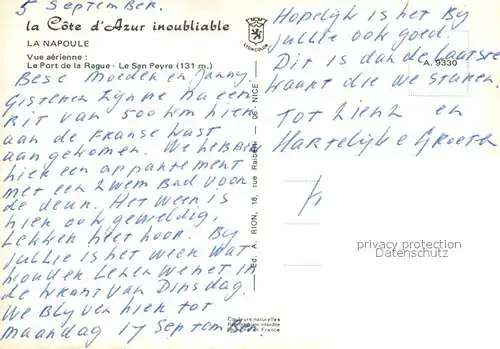 5 September.
la Côte d'Azur inoubliable
LA NAPOULE
Vue aérienne :
Le Port de la Rague - Le San Peyre (131 m.)
Beste Moeder en Janny.
Gisteren zijn we na een
rit van 500 km hier
aan de Franse kust
aangekomen. We hebben
hier een appartement
met een zwembad voor
de deur. Het weer is
hier ook geweldig,
Lekker heet hoor. By
jullie is het weer wat
houden lezen we net in
de krant van Dinsdag.
We Blyven hier tot
maandag 17 September.
Hopelyk is het By
jullie ook goed.
Dit is dan de laatste
kaart die we sturen.
Tot ziens en
Hartelyke Groeten
A. 9330
Ed. A. RION, 18, rue Raiberti - 06-NICE
Couleurs naturelles
privacy protection
Datenschutz